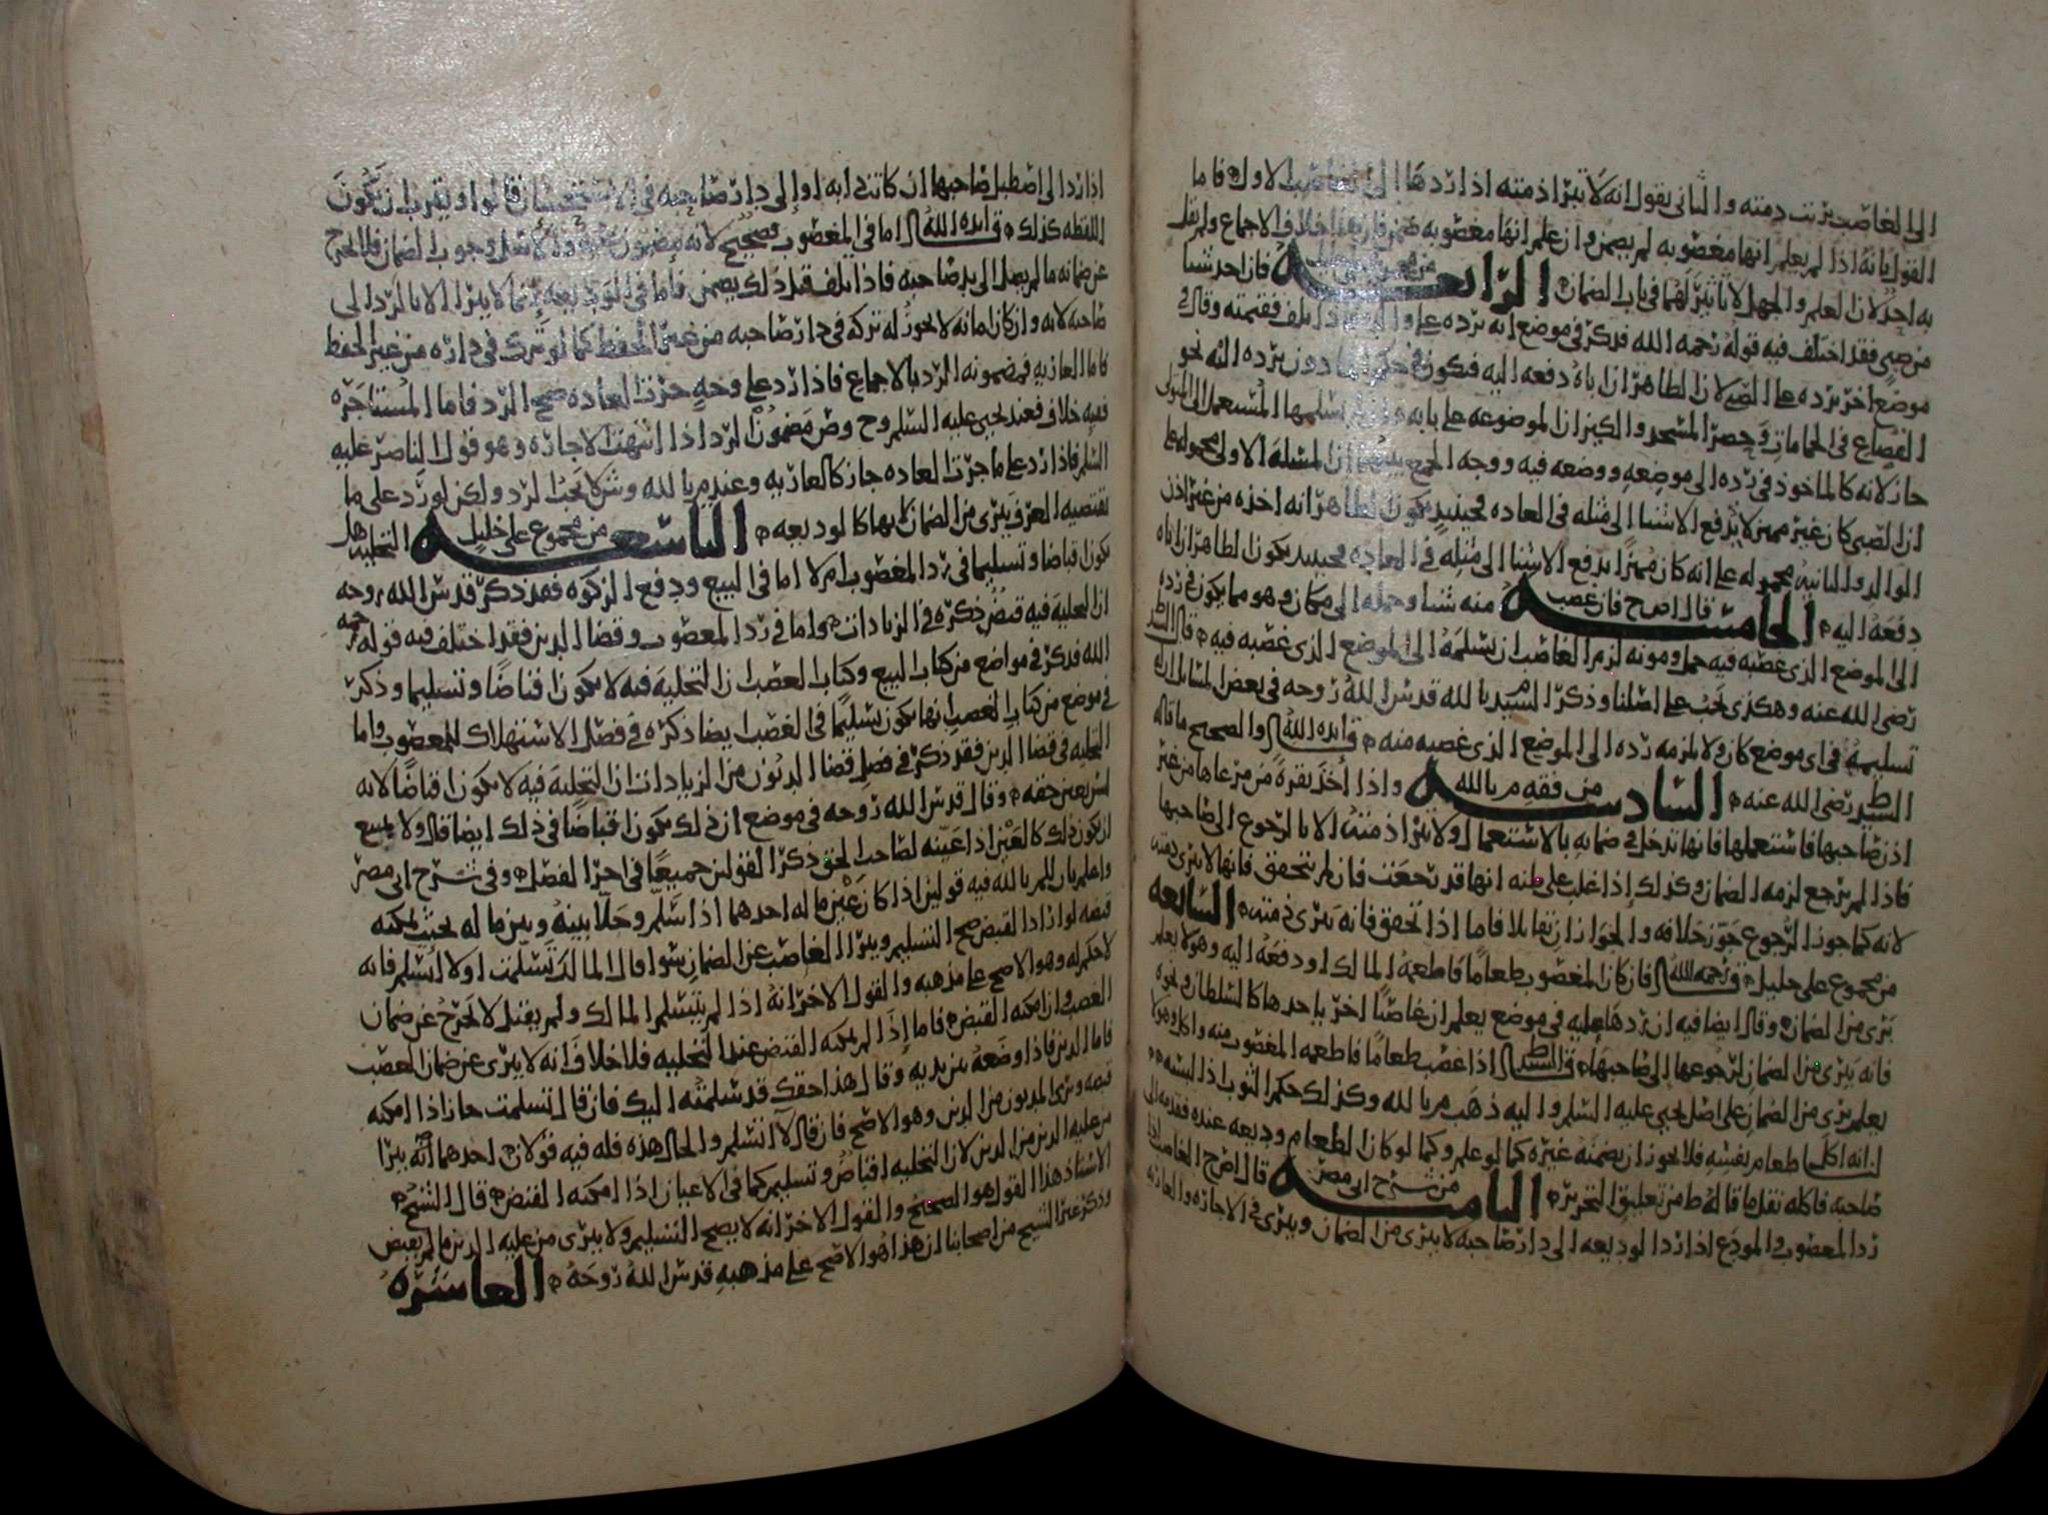 الى الغاصب برئت ذمته والثاني يقول انه لا تبرا ذمته اذا ردها الى الغاصب الاول فاما
القول بانه اذا لم يعلم انها مغصوبه لم يضمن وان علم انها مغصوبه ضمن فان هذا خلاف الاجماع ولم يقل
به احد لان العلم والجهل لا تاثير لهما في باب الضمان الرابعه من مجموع علي خليل فان اخذ شيا
من صبي فقد اختلف فيه قوله رحمه الله فذكر في موضع انه يرده على فان تلف فقيمته وقال في
موضع اخر يرده على الصبي لان الظاهر ان اباه دفعه اليه فيكون في حكم دون يرده اليه نحو
القصاع في الحمامات وحصر المسجد والكيزان الموضوعه على بابه يسلمها المستعمل الى المتولي
جاز لانه كالماخوذ في رده الى موضعه ووضعه فيه ووجه الجمع بينهما ان المسله الاولى محموله على
ان الصبي كان غير مميز لا يدفع الاشيا الى مثله في العاده فحينيذ يكون الظاهر انه اخذه من غير اذن
الوالد والثانيه محموله على انه كان مميزا تدفع الاشيا الى مثله في العاده فحينيذ يكون الظاهر ان اباه
دفعه اليه الخامسه قال اص ح فان غصب منه شيا وحمله الى مكان وهو مما يكون في رده
الى الموضع الذي غصبه فيه حمل ومونه لزم الغاصب ان يسلمه الى الموضع الذي غصبه فيه قال السيد ط
رضي الله عنه وهكذى يجب على اصلنا وذكر السيد م بالله قدس الله روحه في بعض المسايل ان
تسليمه في اي موضع كان ولا يلزمه رده الى الموضع الذي غصبه منه ق ايده الله والصحيح ما قاله
السيد ط رضي الله عنه السادسه من فقه م بالله واذا اخذ بقرة من مرعاها من غير
اذن صاحبها فاستعملها فانها تدخل في ضمانه بالاستعمال ولا يبرا ذمته الا بالرجوع الى صاحبها
فاذا لم يرجع لزمه الضمان وكذلك اذا غلب على ظنه انها قد رجعت فان لم يتحقق فانها لا يبرى ذمته
لانه كما جوز الرجوع جوز خلافه والجوازان تقابلا فاما اذا تحقق فانه يبرى ذمته السابعه
من مجموع علي خليل ق رحمه الله فان كان المغصوب طعاما فاطعمه المالك او دفعه اليه وهو لا يعلم
برى من الضمان وقال ايضا فيه ان ردها عليه في موضع يعلم ان غاصبا اخر ياخدها كالسلطان ونحوه
فانه يبرى من الضمان لرجوعها الى صاحبها قال السيد ط اذا غصب طعاما فاطعمه المغصوب منه واكل وهو لا
يعلم برى من الضمان على اصل يحيى عليه السلم واليه ذهب م بالله وكذلك حكم الثوب اذا لبسه
لنا انه اكل طعامه بنفسه فلا يجوز ان يضمنه غيره كما لو علم وكما لو كان الطعام وديعه عنده فقدمه الى
صاحبه فاكله نقل ما قاله ط من تعليق التحرير الثامنه من شرح ابي مضر قال اص ح الغاصب اذا
رد المغصوب والمودع اذا رد الوديعه الى دار صاحبه لا يبرى من الضمان ويبرى في الاجازه والعاريه
اذا رد الى اصطبل صاحبها ان كانت دابه او الى دار صاحبه في الاستحسان قالوا ويقرب ان يكون
اللقطه كذلك ق ايده الله اما في المغصوب فصحيح لانه مضمون عليه والاصل وجوب الضمان فلا يخرج
عن ضمانه ما لم يصل الى يد صاحبه فاذا تلف قبل ذلك يضمن فاما في الوديعه انما لا يبرا الا بالرد الى
صاحبه لانه وان كان امانه لا يجوز له تركه في دار صاحبه من غير الحفظ كما لو ترك في داره من غير الحفظ
فاما العاريه فمضمونه الرد بالاجماع فاذا رد على وجه جرت العاده صح الرد فاما المستاجره
ففيه خلاف فعند يحيى عليه السلم وح وص مضمون الرد اذا انتهت الاجاره وهو قول الناصر عليه
السلم فاذا رد على ما جرت العاده جاز كالعاريه وعند م بالله وش لا يجب الرد ولكن لو رد على ما
تقتضيه العرف يبرى من الضمان لانها كالوديعه التاسعه من مجموع علي خليل التخليه هل
يكون قباضا وتسليما في رد المغصوب ام لا اما في البيع ودفع الزكوه فقد ذكر قدس الله روحه
ان التخليه فيه قبض ذكره في الزيادات واما في رد المغصوب وقضا الدين فقد اختلف فيه قوله رحمه
الله فذكر في مواضع من كتاب البيع وكتاب الغصب ان التخلية فيه لا يكون اقباضا وتسليما وذكر
في موضع من كتاب الغصب انها يكون تسليما في الغصب ايضا ذكره في فصل الاستهلاك للمغصوب واما
التخليه في قضا الدين فقد ذكر في فصل قضا الديون من الزيادات ان التخلية فيه لا يكون اقباضا لانه
ليس بعين حقه وقال قدس الله روحه في موضع ان ذلك يكون اقباضا في ذلك ايضا قال ولا يمتنع
ان يكون ذلك كالعين اذا عينه لصاحب الحق ذكر القولين جميعا في اخر الفصل وفي شرح ابي مضر
واعلم بان للم بالله فيه قولين اذا كان عين ماله احدهما اذا سلم وخلا بينه وبين ماله بحيث يمكنه
قبضه لو اراد القبض صح التسليم ويبرا الغاصب عن الضمان سوا قال المالك تسلمت او لا اتسلم فانه
لا حكم له وهو الاصح على مذهبه والقول الاخر انه اذا لم يتسلم المالك ولم يقبل لا يخرج عن ضمان
الغصب وان امكنه القبض فاما اذا لم يمكنه القبض عند التخليه فلا خلاف انه لا يبرى عن ضمان الغصب
فاما الدين فاذا وضعه بين يديه وقال هذا حقك قد سلمته اليك فان قال تسلمت جاز اذا امكنه
قبضه وبرى المديون من الدين وهو الاصح فان قال لا اتسلم والحال هذه فله فيه قولان احدهما انه يبرا
من عليه الدين من الدين لان التخليه اقباض وتسليم كما في الاعيان اذا امكنه القبض قال الشيخ
الاستاذ هذا القول هو الصحيح والقول الاخر انه لا يصح التسليم ولا يبرى من عليه الدين ما لم يقبض
وذكر غير الشيخ من اصحابنا ان هذا هو الاصح على مذهبه قدس الله روحه العاشره